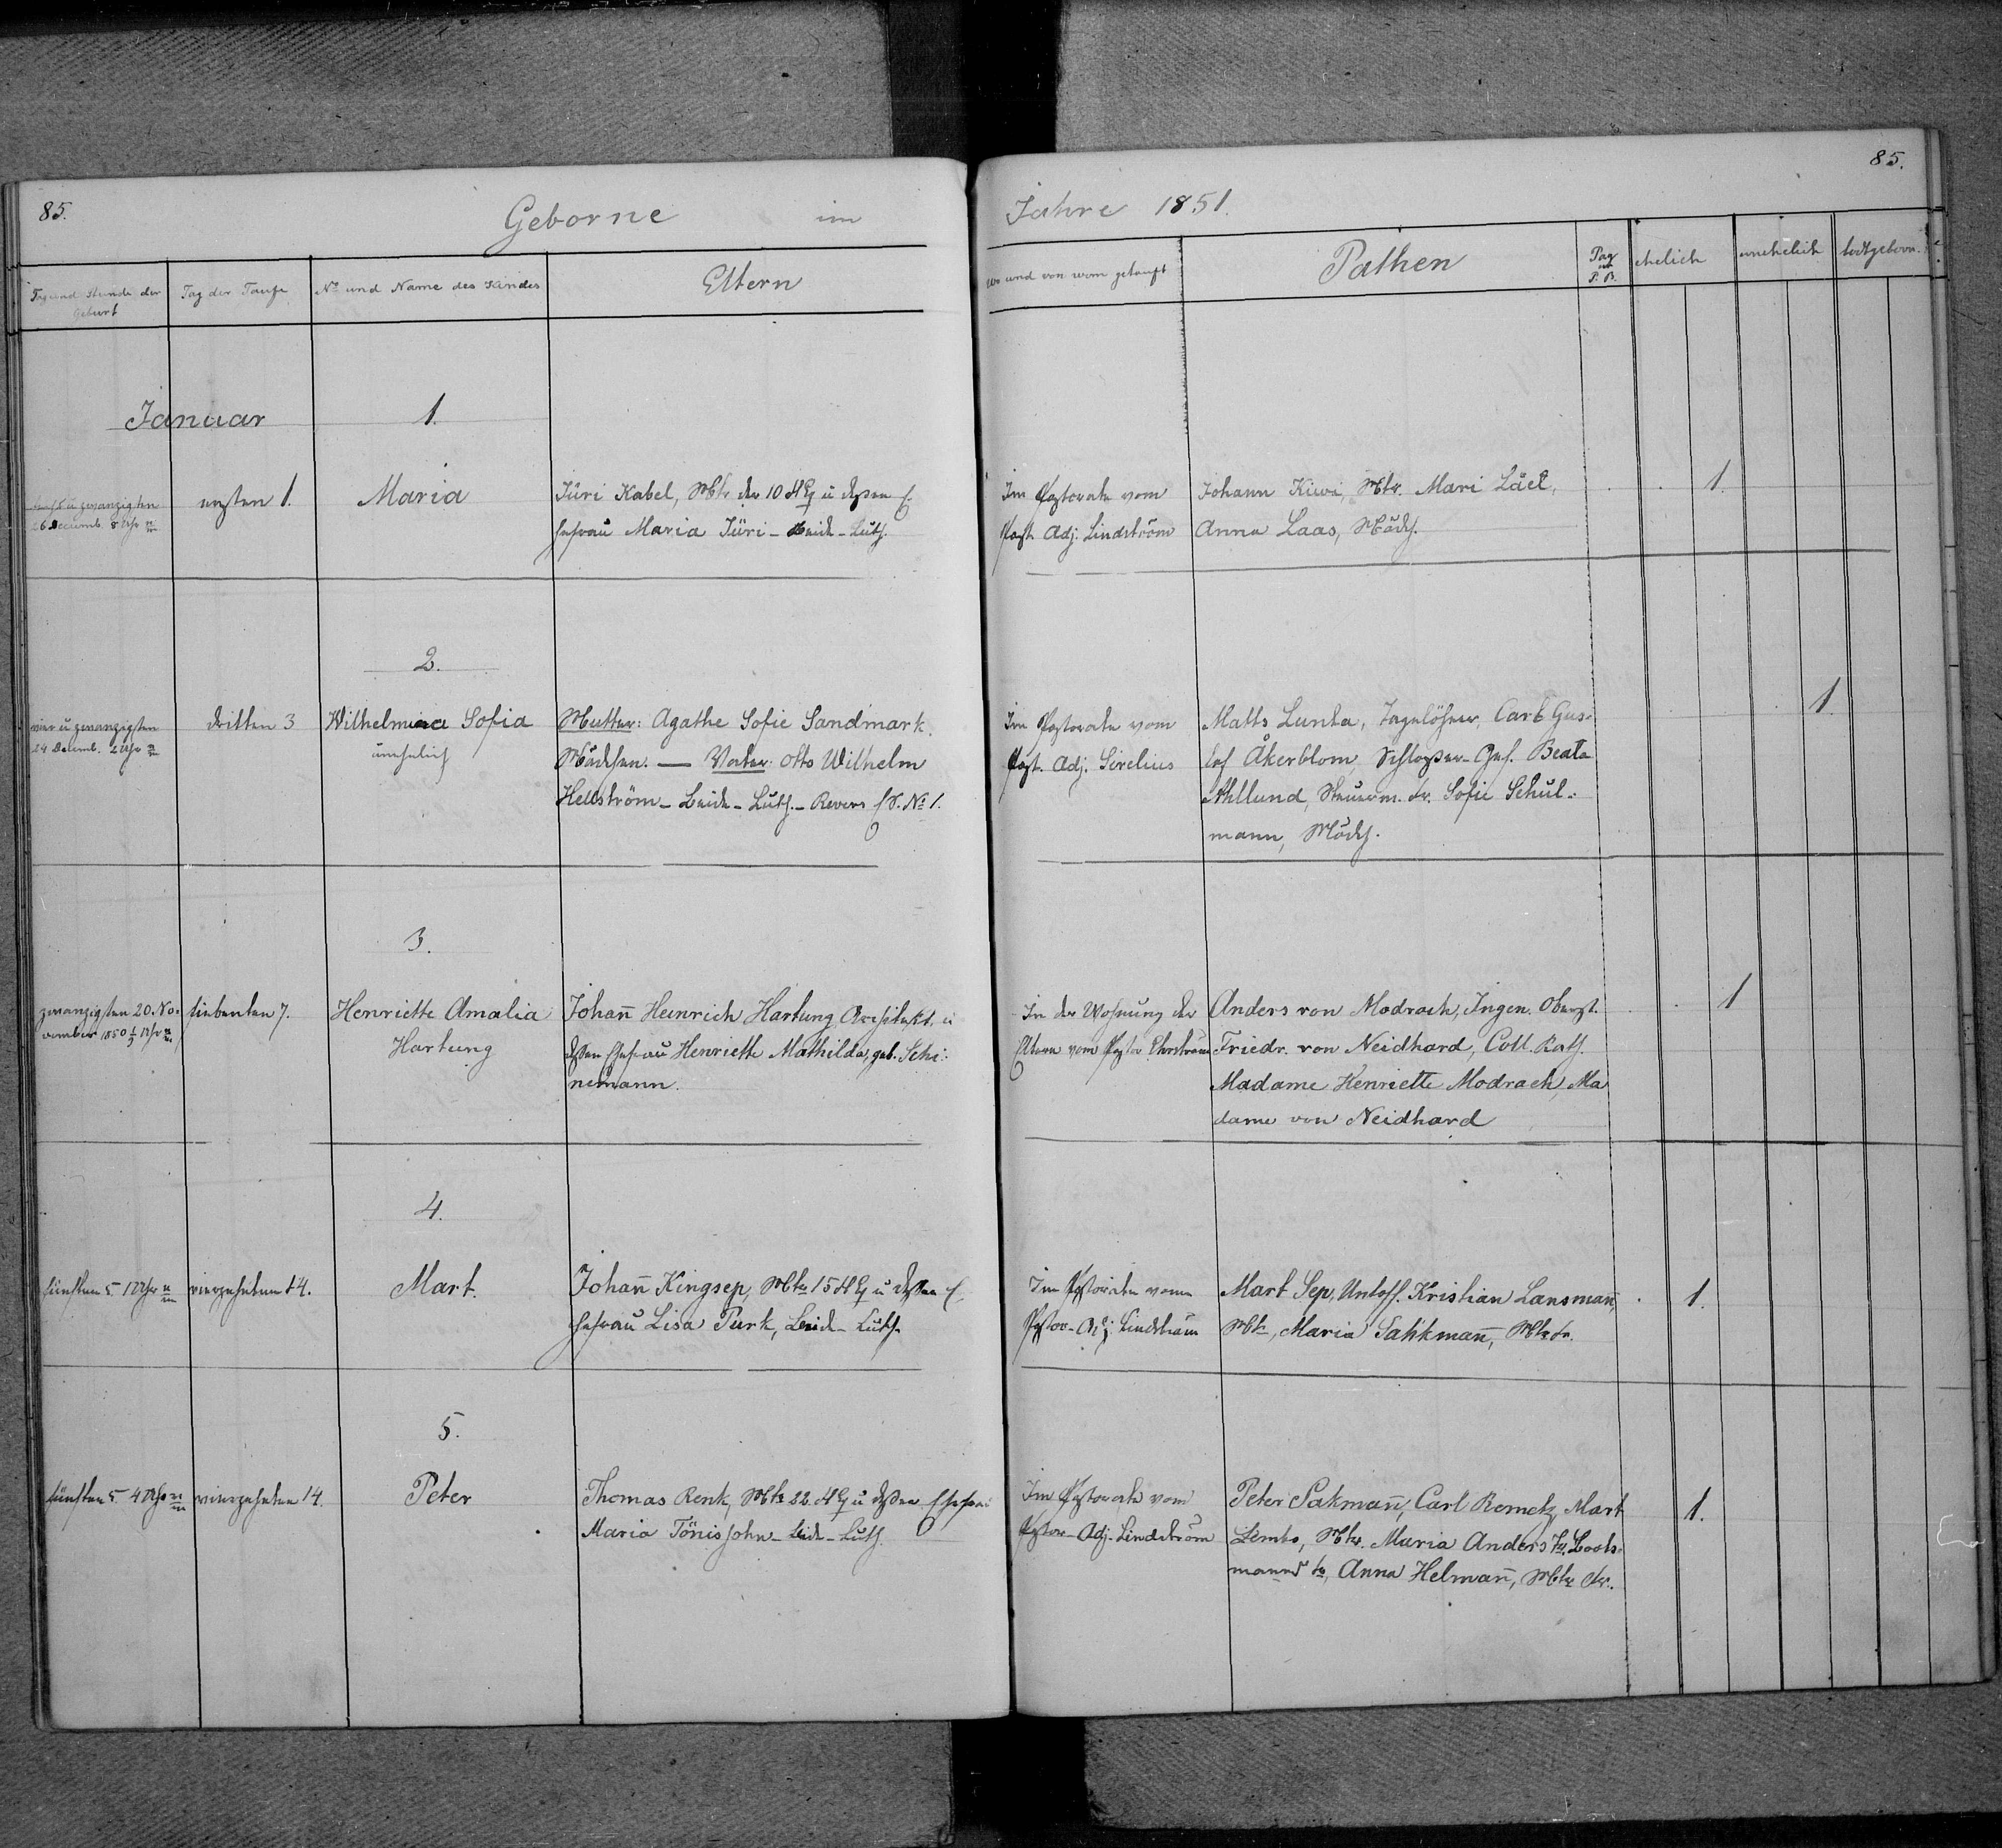 85.
Geborne im
Tag und Stunde der Geburt
Tag der Taufe
No und Name des Kindes
Eltern
Januar
1.
sechs u zwanzigsten
26 Decemb. 8 Uhr
ersten 1.
Maria
Jüri Kabel, Mtr. der 10 u deßen E
hefrau Maria Jüri - Beide - Luth.
2.
vier u zwanzigsten
24 Decemb. 2 Uhr
dritten 3
Wilhelmina Sofia
unehelich
Mutter: Agathe Sofie Sandmark.
Mädchen. — Vater: Otto Wilhelm
Hellström - Beide - Luth. - Revers No 1.
3.
zwanzigsten 20. No-
vember 1850 Uhr
siebenten 7.
Henriette Amalia
Hartung
Johan̄ Heinrich Hartung Architekt, u
deßen Ehefrau Henriette Mathilda, geb. Schi-
nemann.
4.
fünften 5 1 Uhr
vierzehnten 14.
Mart.
Johan̄ Kingsep, Mtr. 15 u deßen E
hefrau Lisa Purk, Beide - Luth.
5.
fünften 5 4 Uhr
vierzehnten 14.
Peter
Thomas Renk, Mtr. 22. u deßen Ehefrau
Maria Tönisjohn - Beide - Luth.
85.
Jahre 1851.
Wo und von wem getauft
Pathen
Pag in P. B.
ehelich
unehelich
todtgeborn.
Im Pastorate vom
Past. Adj. Lindström
Johann Kiwi, Mtr. Mari Läel,
Anna Laas, Mädch.
1.
Im Pastorate vom
Past. Adj. Sirelius
Matts Lunta, Tagelöhner, Carl Gus-
taf Åkerblom, Schloßer - Ges. Beata
Ahllund, Steuerm. Fr. Sofie Schul-
mann, Mädch.
1.
In der Wohnung der
Eltern vom Pastor Ehrström
Anders von Modrach, Ingen. Oberst.
Friedr. von Neidhard, Coll. Rath.
Madame Henriette Modrach, Ma
dame von Neidhard
1
Im Pastorate vom
Pastor - Adj. Lindström
Mart Sep, Untoff. Kristian Lansman̄,
Mtr., Maria Sahkman̄, Mtr. Fr.
1.
Im Pastorate vom
Pastor - Adj. Lindström
Peter Sakman̄, Carl Remetz, Mart
Lembo, Mtr. Maria Anders Fr. Boots-
manns Fr., Anna Helman̄, Mtr. Fr.
1.